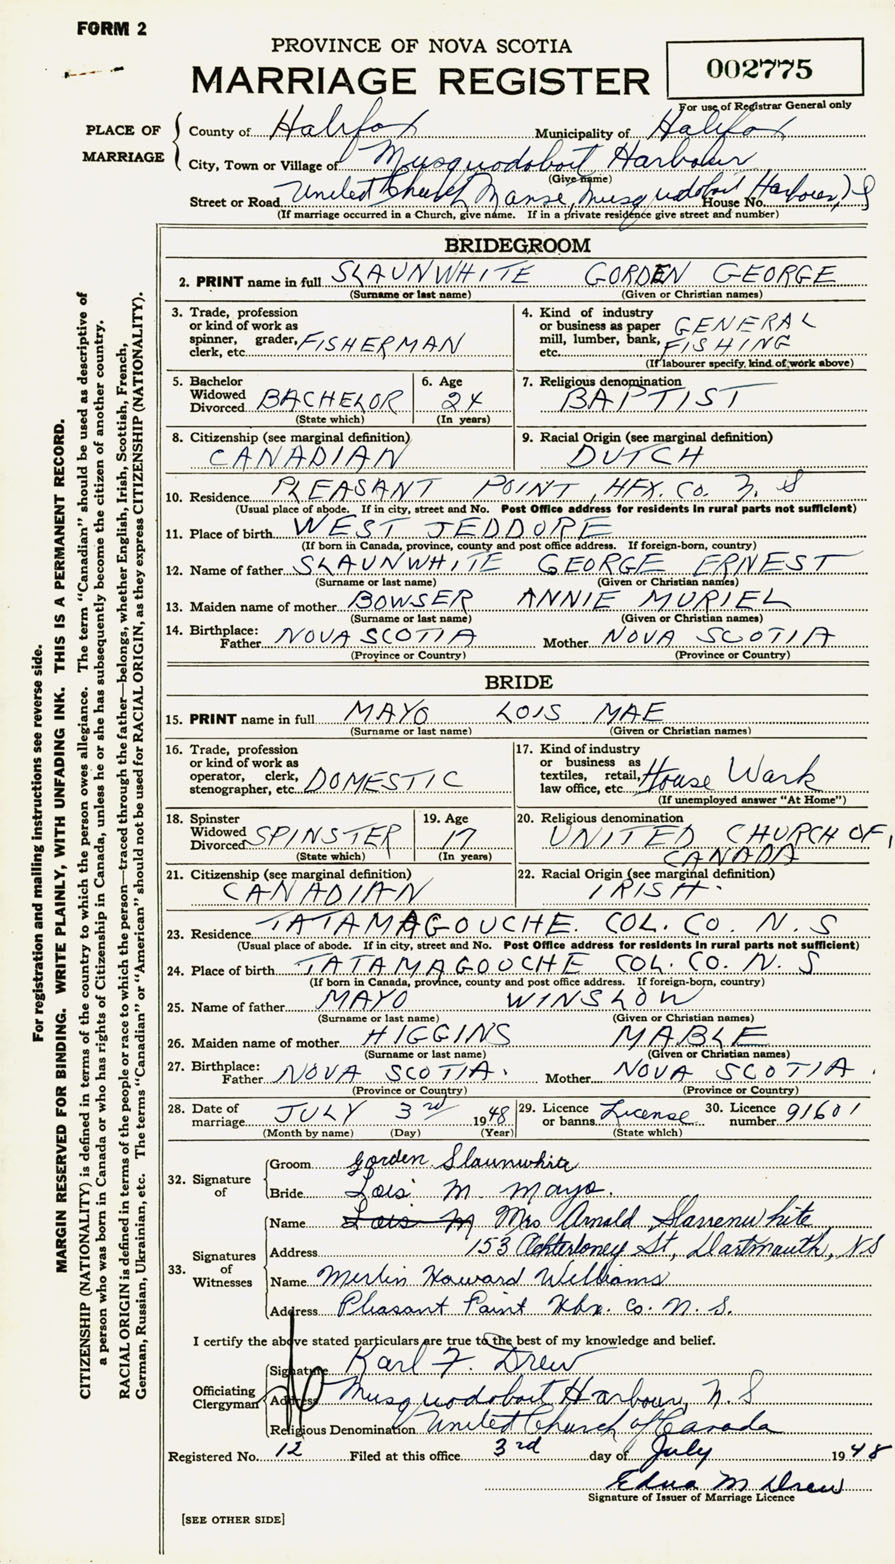 FORM 2
PROVINCE OF NOVA SCOTIA
MARRIAGE REGISTER
002775
For use of Registrar General only
PLACE OF MARRIAGE
County of Halifax Municipality of Halifax
City, Town or Village of Musquodoboit Harbour
(Give name)
Street or Road United Church Manse, Musquodoboit Harbour, N S House No.
(If marriage occurred in a Church, give name. If in a private residence give street and number)
BRIDEGROOM
2. PRINT name in full SLAUNWHITE GORDEN GEORGE
(Surname or last name) (Given or Christian names)
3. Trade, profession or kind of work as spinner, grader, clerk, etc. FISHERMAN
4. Kind of industry or business as paper mill, lumber, bank, etc. GENERAL FISHING
(If labourer specify, kind of work above)
5. Bachelor Widowed Divorced BACHELOR
(State which)
6. Age 24
(In years)
7. Religious denomination
BAPTIST
8. Citizenship (see marginal definition)
CANADIAN
9. Racial Origin (see marginal definition)
DUTCH
10. Residence PLEASANT POINT, HFX. Co. N. S
(Usual place of abode. If in city, street and No. Post Office address for residents in rural parts not sufficient)
11. Place of birth WEST JEDDORE
(If born in Canada, province, county and post office address. If foreign-born, country)
12. Name of father SLAUNWHITE GEORGE ERNEST
(Surname or last name) (Given or Christian names)
13. Maiden name of mother BOWSER ANNIE MURIEL
(Surname or last name) (Given or Christian names)
14. Birthplace: Father NOVA SCOTIA Mother NOVA SCOTIA
(Province or Country) (Province or Country)
BRIDE
15. PRINT name in full MAYO LOIS MAE
(Surname or last name) (Given or Christian names)
16. Trade, profession or kind of work as operator, clerk, stenographer, etc. DOMESTIC
17. Kind of industry or business as textiles, retail, law office, etc. House Work
(If unemployed answer "At Home")
18. Spinster Widowed Divorced SPINSTER
(State which)
19. Age 17
(In years)
20. Religious denomination
UNITED CHURCH OF, CANADA
21. Citizenship (see marginal definition)
CANADIAN
22. Racial Origin (see marginal definition)
IRISH.
23. Residence TATAMAGOUCHE. COL. CO. N. S
(Usual place of abode. If in city, street and No. Post Office address for residents in rural parts not sufficient)
24. Place of birth TATAMAGOUCHE COL. CO. N. S
(If born in Canada, province, county and post office address. If foreign-born, country)
25. Name of father MAYO WINSLOW
(Surname or last name) (Given or Christian names)
26. Maiden name of mother HIGGINS MABLE
(Surname or last name) (Given or Christian names)
27. Birthplace: Father NOVA SCOTIA. Mother NOVA SCOTIA.
(Province or Country) (Province or Country)
28. Date of marriage JULY 3rd 1948
(Month by name) (Day) (Year)
29. Licence or banns License
(State which)
30. Licence number 91601
32. Signature of
Groom Gorden Slaunwhite
Bride Lois M. Mayo.
33. Signatures of Witnesses
Name Lois M Mrs Arnold Slaunwhite
Address 153 Ochterloney St, Dartmouth, N S
Name Merlin Howard Williams
Address Pleasant Point Hfx. Co. N. S.
I certify the above stated particulars are true to the best of my knowledge and belief.
Officiating Clergyman
Signature Karl F. Drew
Address Musquodoboit Harbour, N. S
Religious Denomination United Church of Canada
Registered No. 12 Filed at this office 3rd day of July 1948
Edna M Drew
Signature of Issuer of Marriage Licence
[SEE OTHER SIDE]
For registration and mailing instructions see reverse side.
MARGIN RESERVED FOR BINDING. WRITE PLAINLY, WITH UNFADING INK. THIS IS A PERMANENT RECORD.
CITIZENSHIP (NATIONALITY) is defined in terms of the country to which the person owes allegiance. The term "Canadian" should be used as descriptive of
a person who was born in Canada or who has rights of Citizenship in Canada, unless he or she has subsequently become the citizen of another country.
RACIAL ORIGIN is defined in terms of the people or race to which the person—traced through the father—belongs, whether English, Irish, Scottish, French,
German, Russian, Ukrainian, etc. The terms "Canadian" or "American" should not be used for RACIAL ORIGIN, as they express CITIZENSHIP (NATIONALITY).